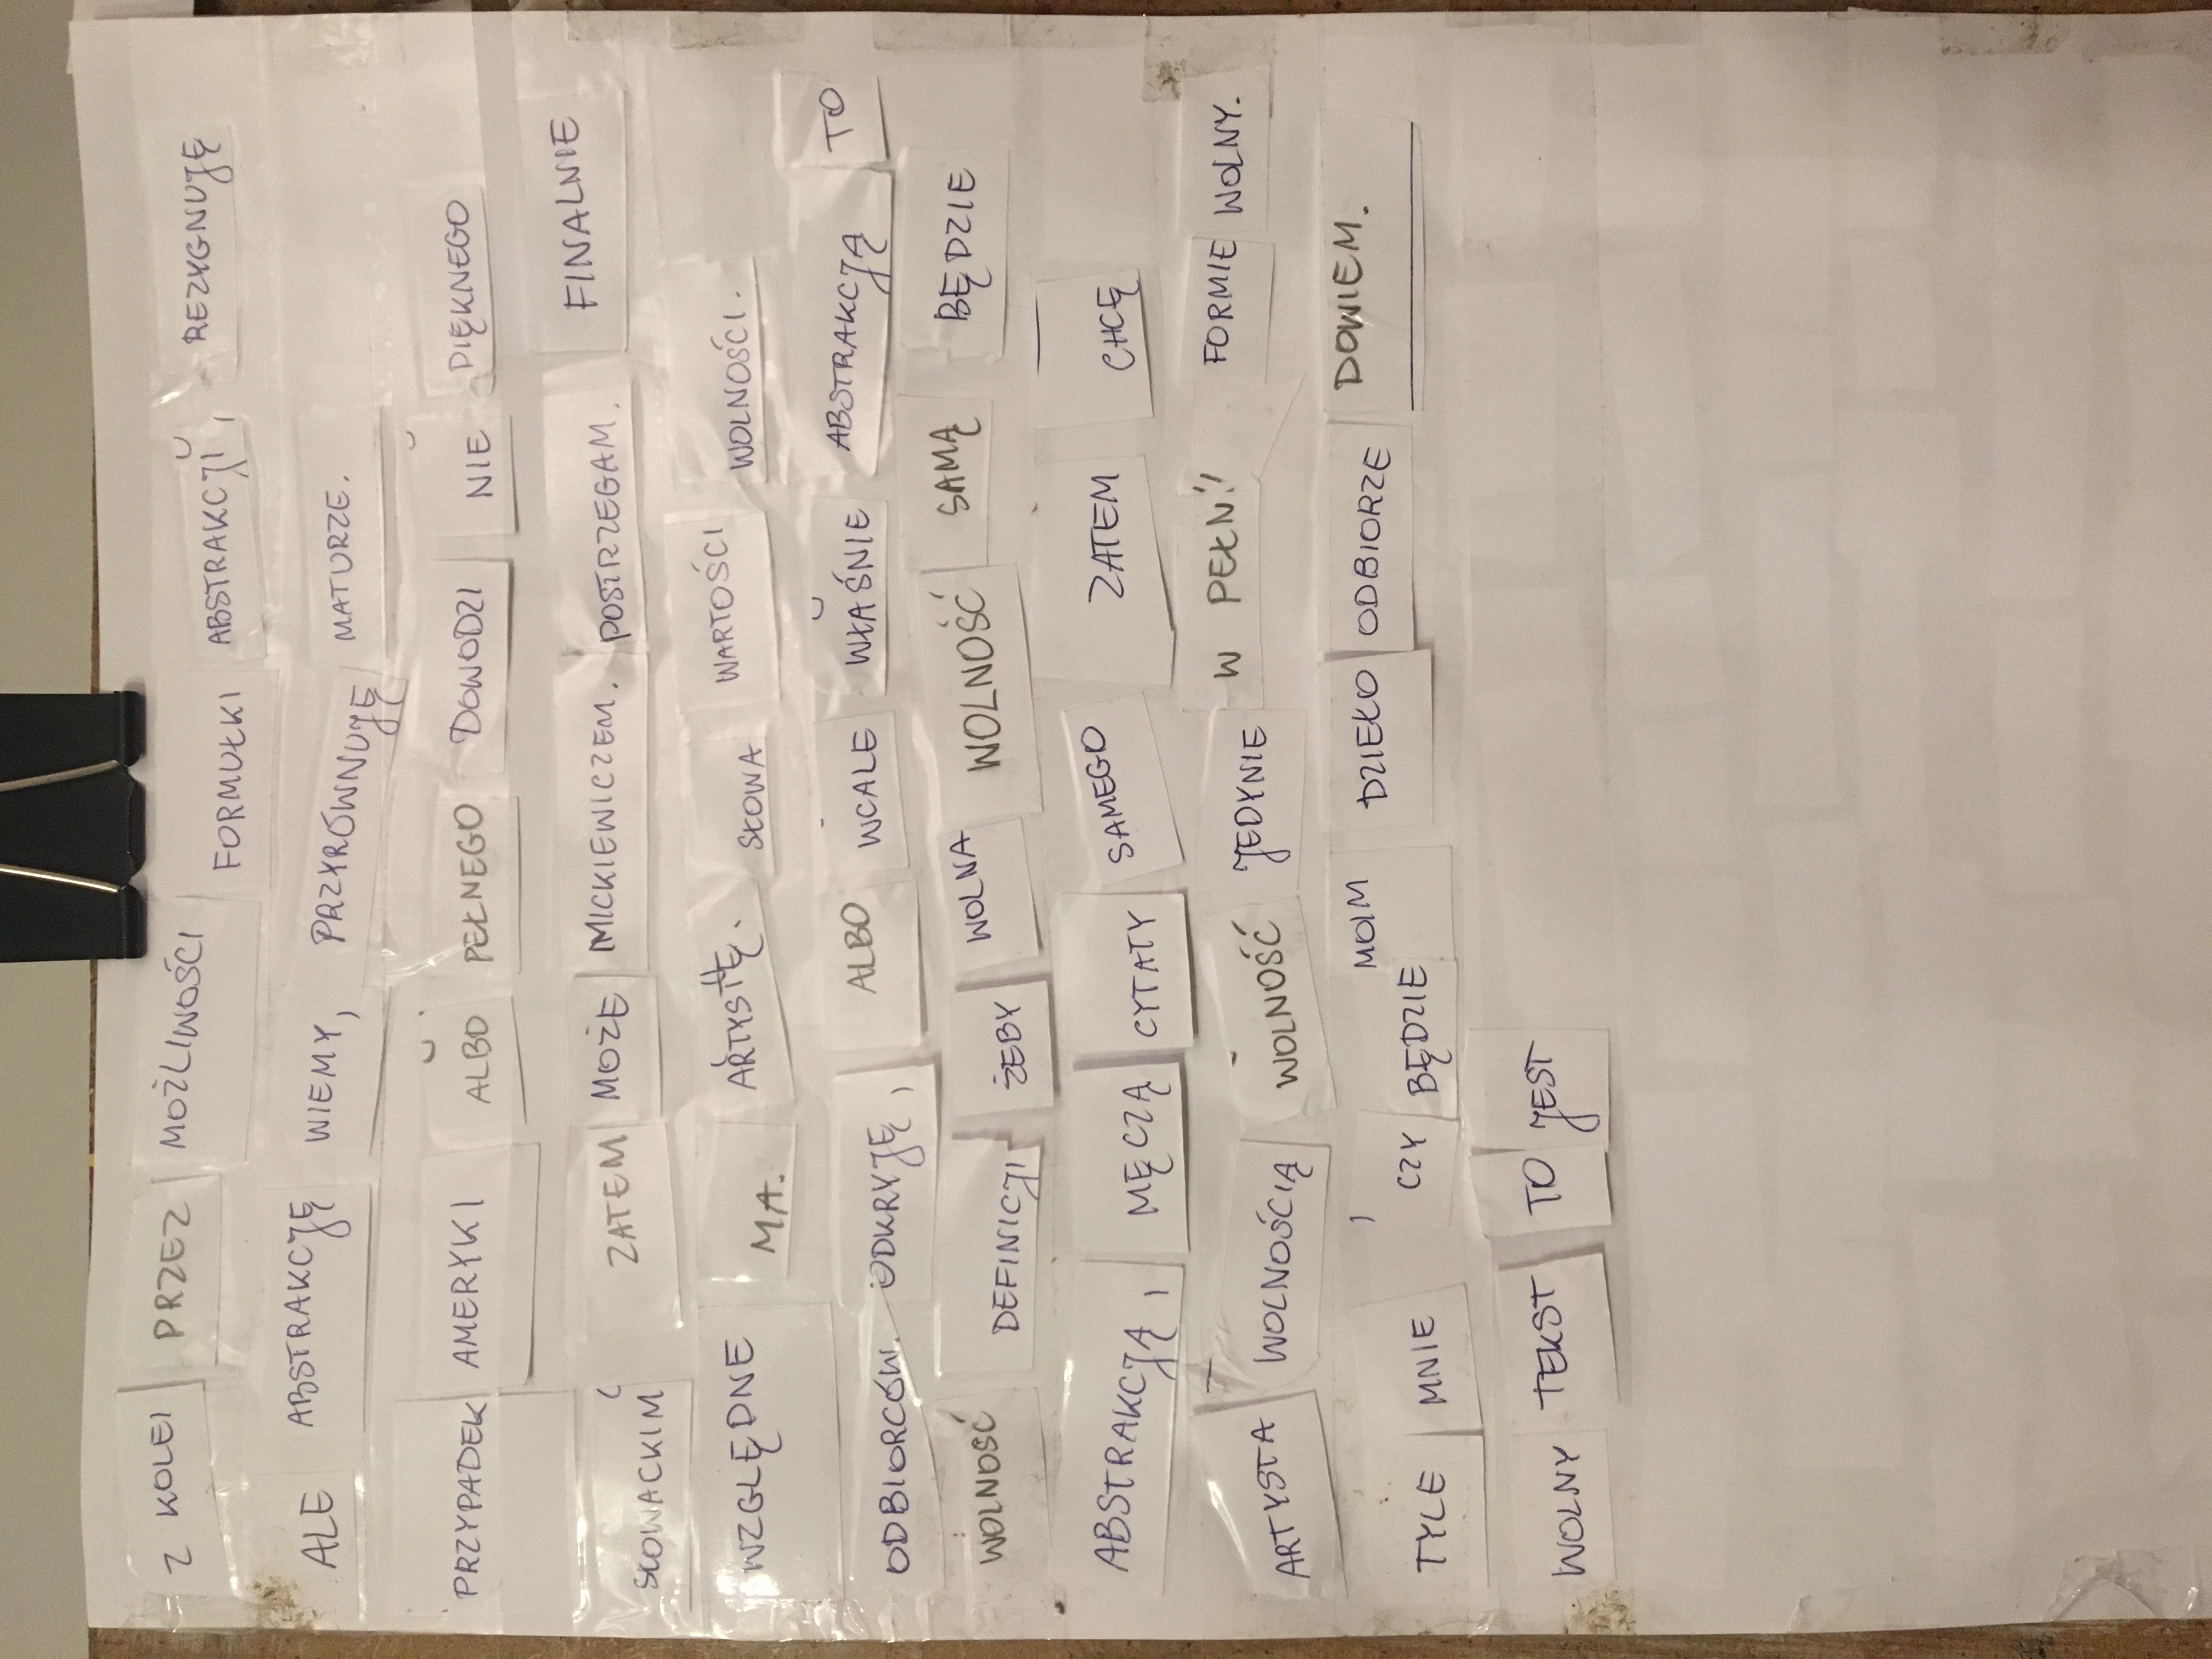 Z KOLEI PRZEZ MOŻLIWOŚCI FORMUŁKI ABSTRAKCJI, REZYGNUJĘ
ALE ABSTRAKCJĘ WIEMY, PRZYRÓWNUJĘ MATURZE.
PRZYPADEK AMERYKI ALBO PEŁNEGO DOWODZI NIE PIĘKNEGO
SŁOWACKIM ZATEM MOŻE MICKIEWICZEM. POSTRZEGAM. FINALNIE
WZGLĘDNE MA. ARTYSTĘ. SŁOWA WARTOŚCI WOLNOŚCI.
ODBIORCÓW. ODKRYJĘ, ALBO WCALE WŁAŚNIE ABSTRAKCJĄ TO
WOLNOŚĆ DEFINICJI ŻEBY WOLNA WOLNOŚĆ SAMĄ BĘDZIE
ABSTRAKCJĄ, MĘCZĄ CYTATY SAMEGO ZATEM CHCĘ
ARTYSTA WOLNOŚCIĄ WOLNOŚĆ JEDYNIE W PEŁNI FORMIE WOLNY.
TYLE MNIE, CZY BĘDZIE MOIM DZIEŁO ODBIORZE DOWIEM.
WOLNY TEKST TO JEST